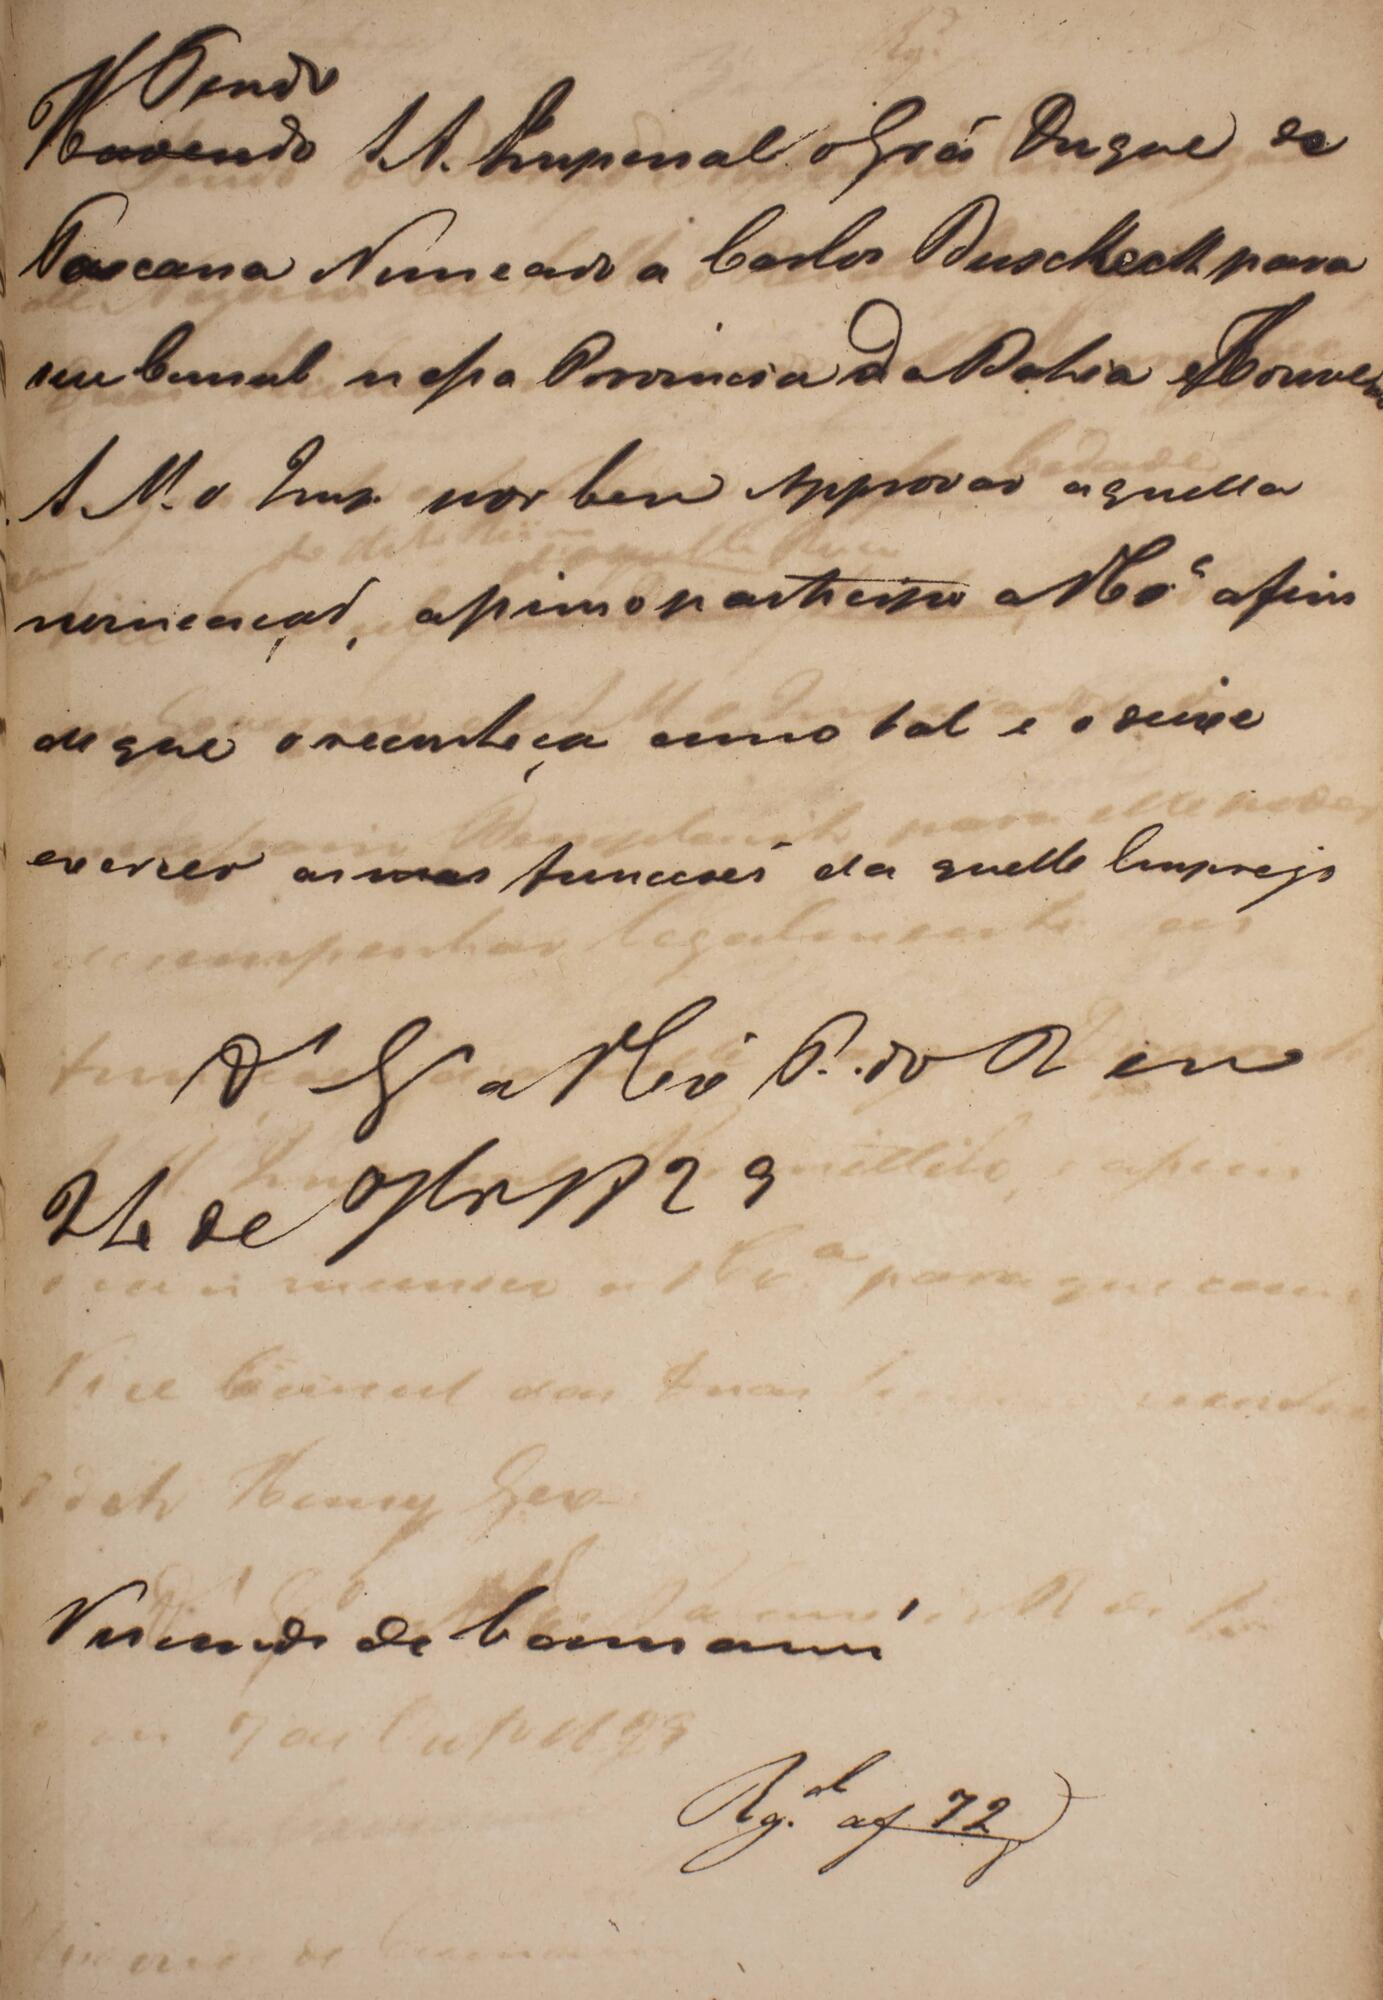 Tendo
Havendo S. A. Imperial o Grão Duque de
Toscana Nomeado a Carlos Buscheck para
seu Consul nessa Provincia da Bahia e Houve
S. M. o Imp. por bem Approvar aquella
nomeação, assim o participo a V. Ex.ª afim
de que o reconheça como tal e o deixe
exercer as suas funcções daquelle Emprego
D.s G.e a V. Ex.ª P. do R. em
26 de 1829
Visconde de Camamú
Rg.da a f 72